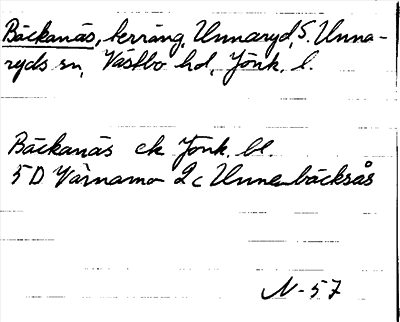 Bäckanäs, terräng, Unnaryd, S. Unna-
ryds sn, Västbo hd, Jönk. l.
Bäckanäs ek Jönk. bl.
5D Värnamo 2c Unnenbäcksås
N-57